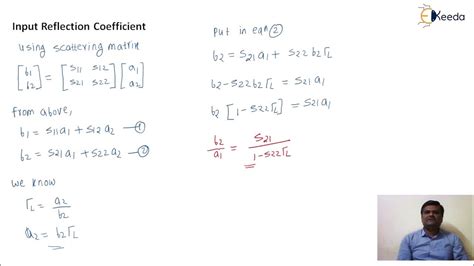 Input Reflection Coefficient
using scattering matrix
[b1 b2] = [s11 s12 s21 s22] [a1 a2]
from above,
b1 = s11 a1 + s12 a2 —①
b2 = s21 a1 + s22 a2 —②
we know
ΓL = a2/b2
a2 = b2 ΓL
put in eqn ②
b2 = s21 a1 + s22 b2 ΓL
b2 - s22 b2 ΓL = s21 a1
b2 [1 - s22 ΓL] = s21 a1
b2/a1 = s21/(1 - s22 ΓL)
Ekeeda